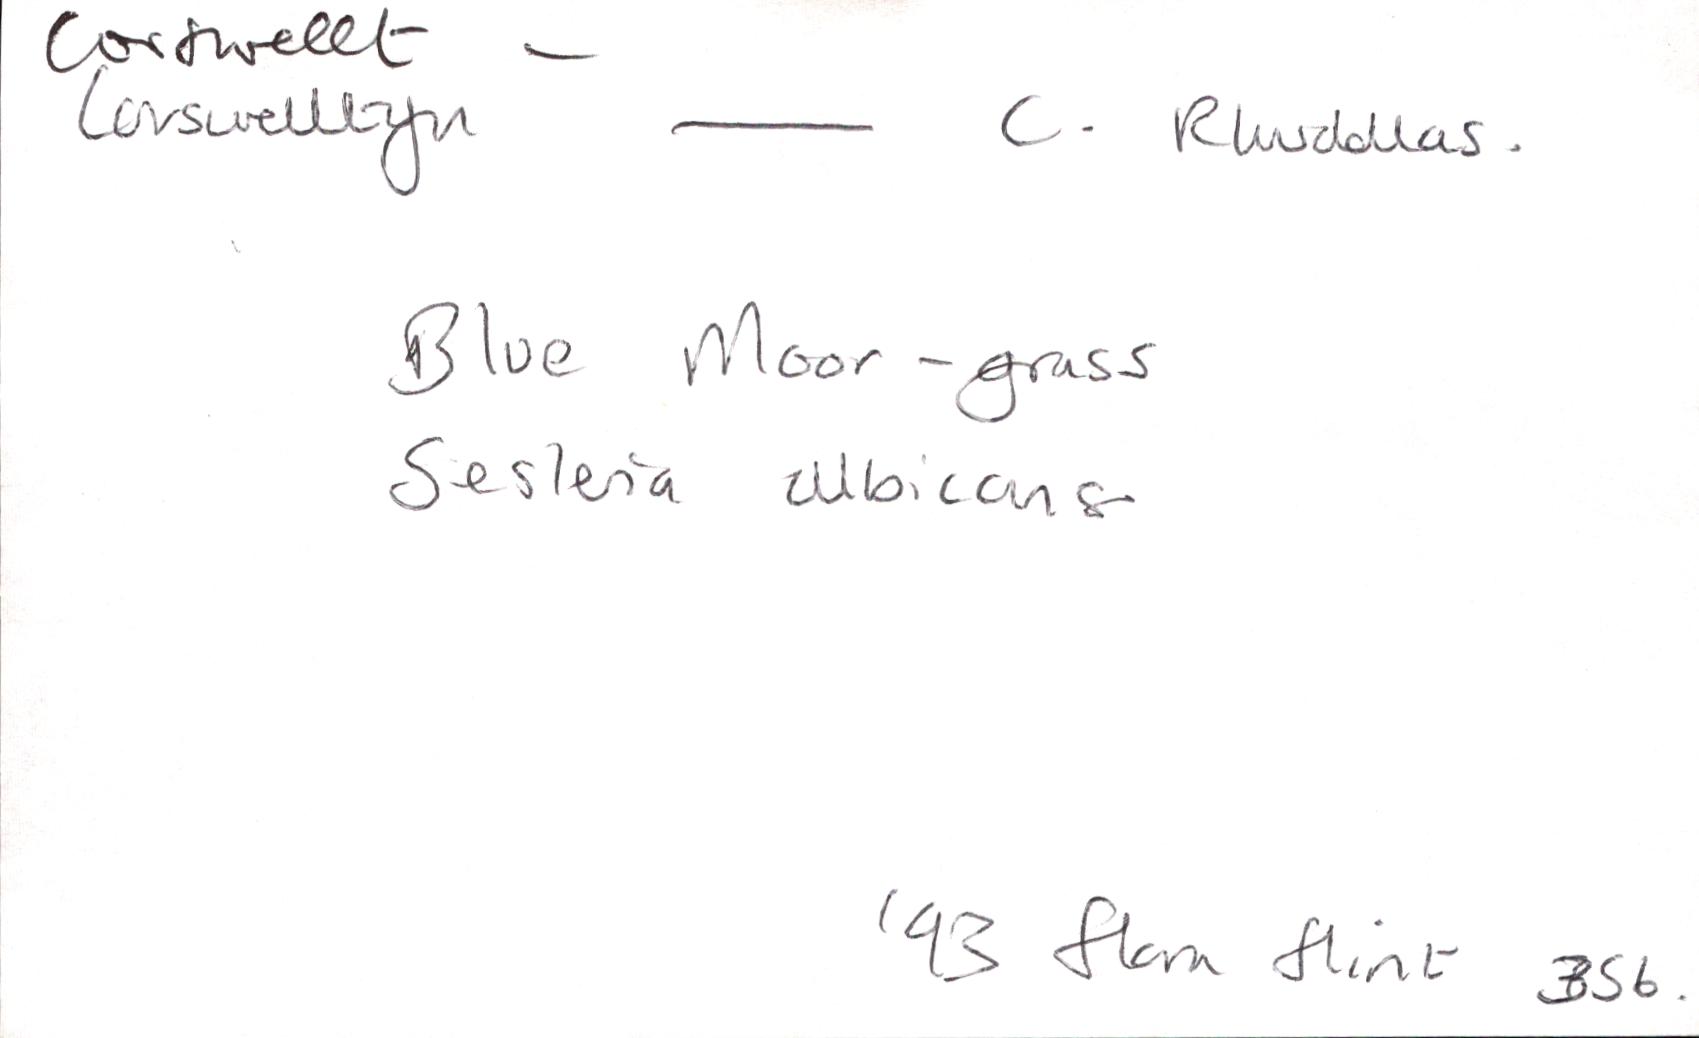 Corswellt –
Corswelltyn — C. Rhuddlas.
Blue Moor-grass
Sesleria albicans
'93 flora flint 356.